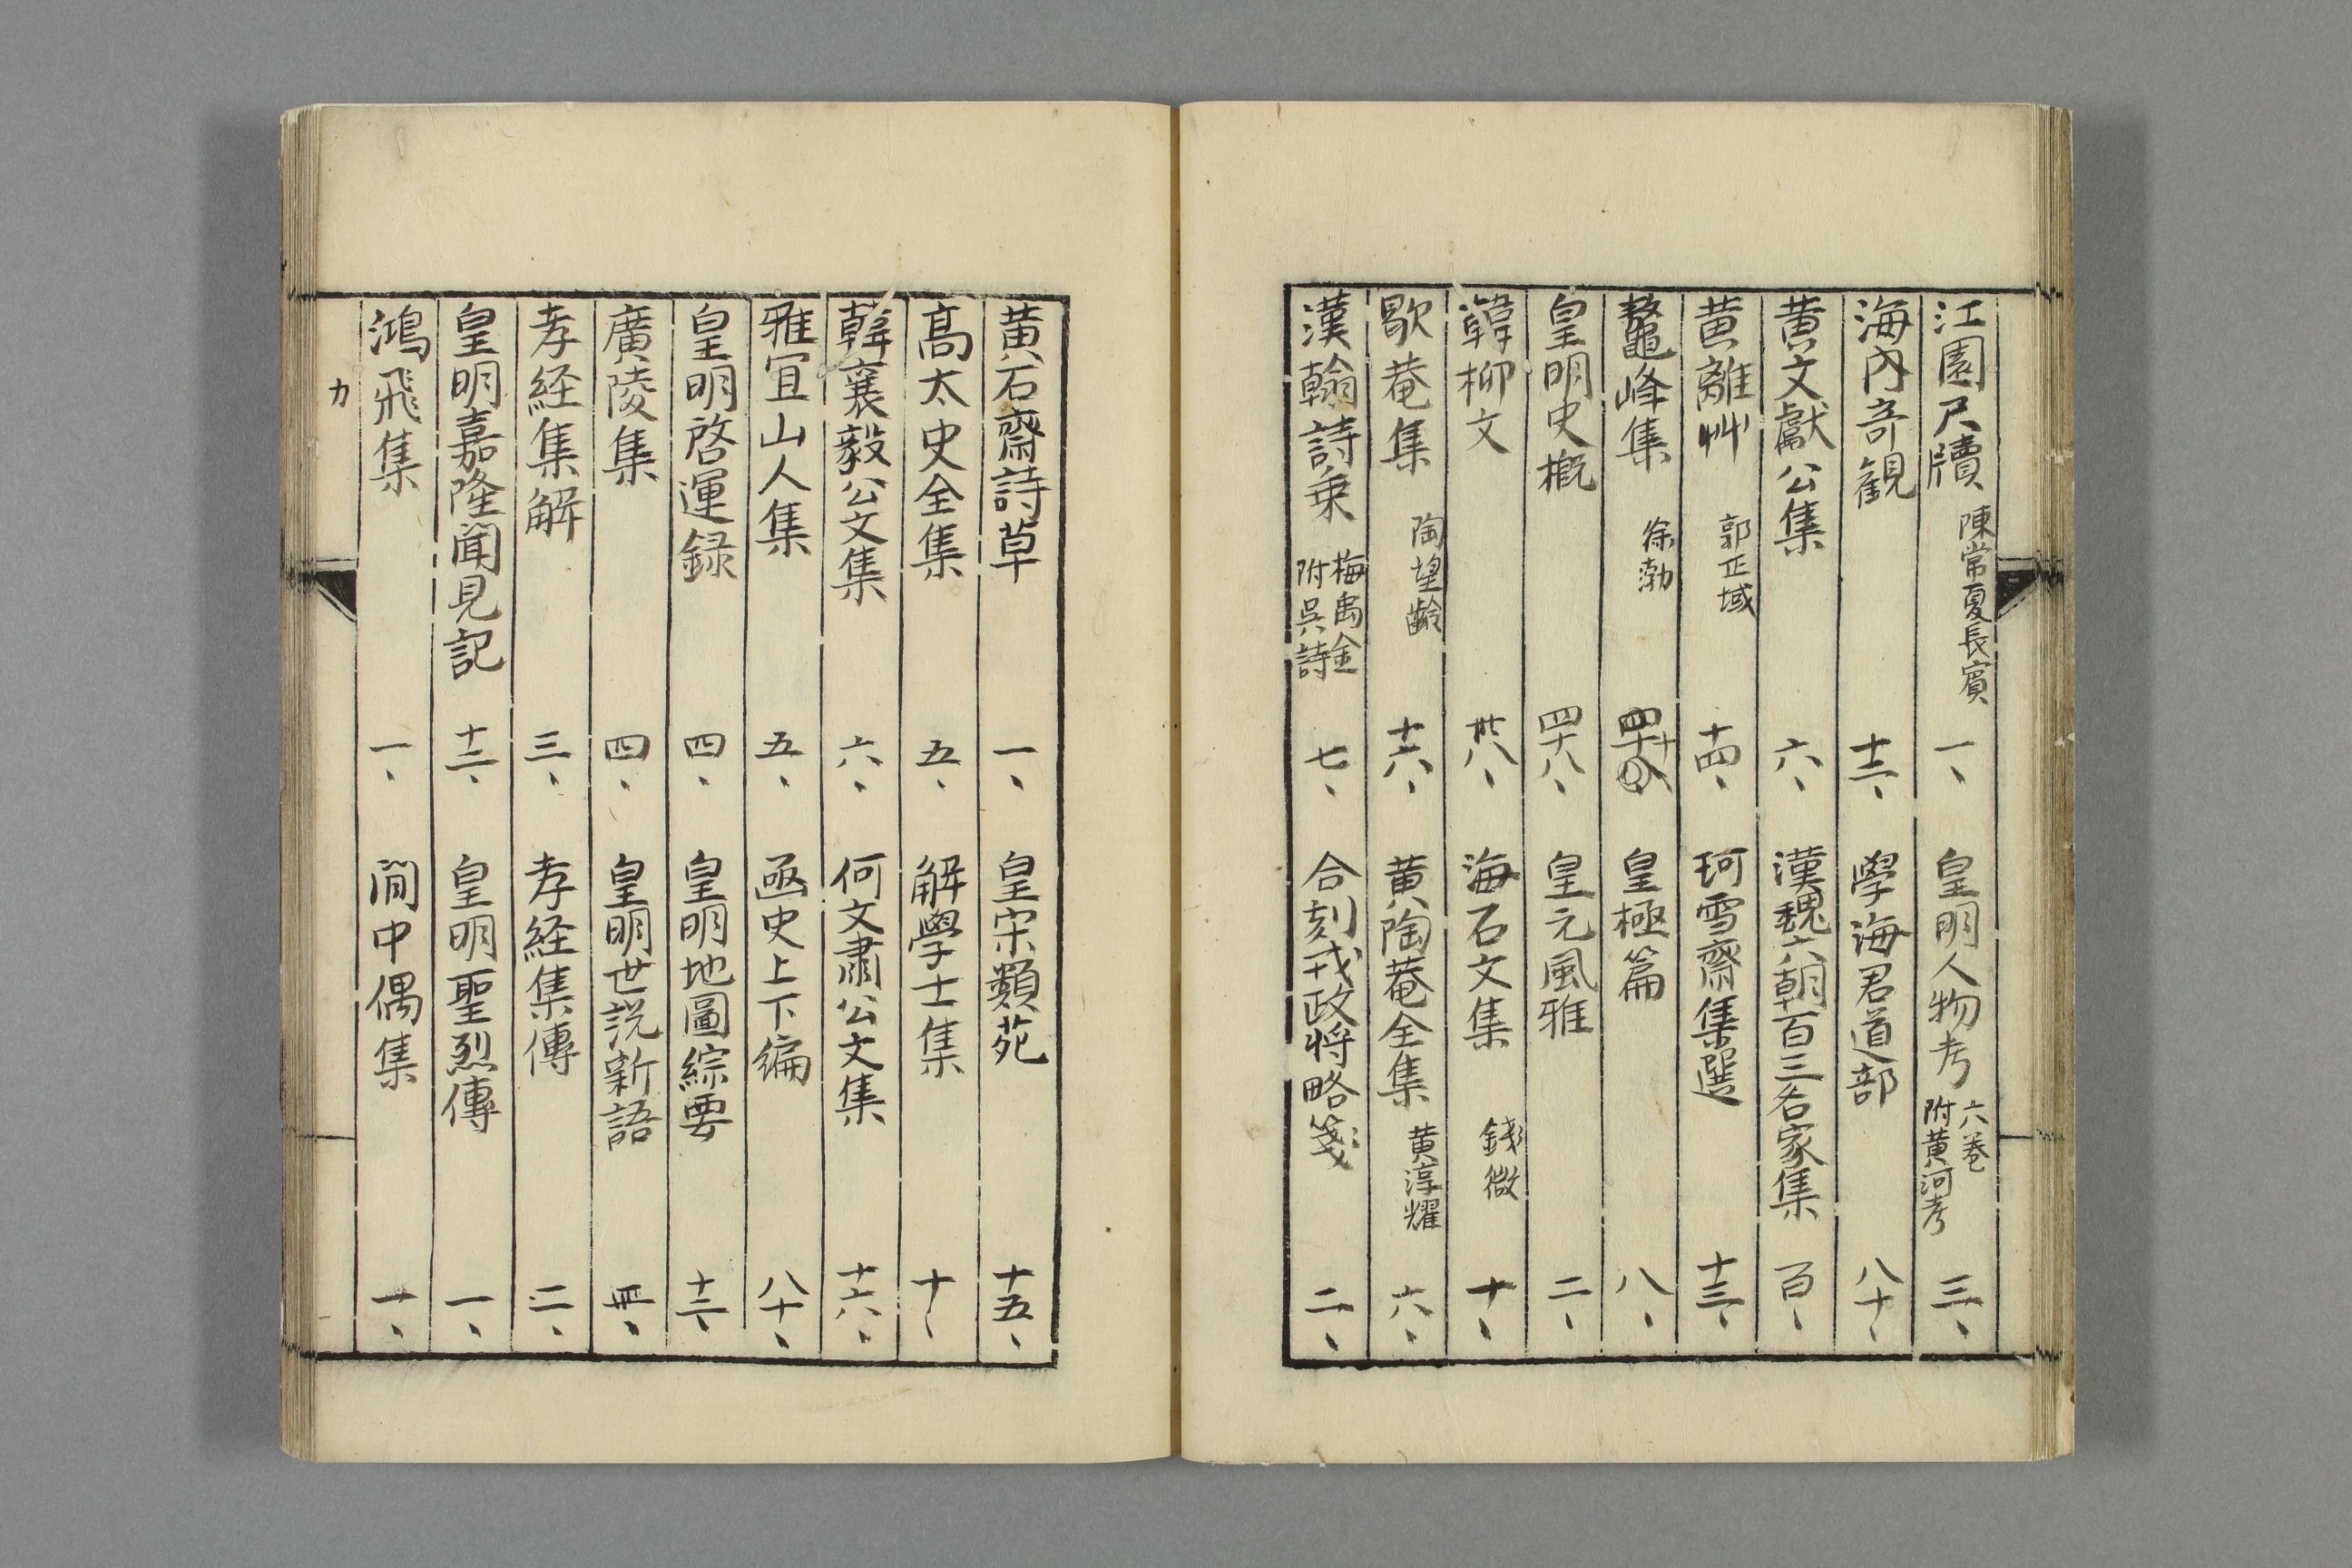 江園尺牘 陳常夏長賓 一、 皇明人物考 六卷 附黄河考 三、
海内奇観 十二、 學海君道部 八十、
黄文獻公集 六、 漢魏六朝百三名家集 百、
黄離艸 郭正域 十四、 珂雪齋集選 十三、
鼇峰集 徐𤊹 皇極篇 八、
皇明史概 四十八、 皇元風雅 二、
韓柳文 卅八、 海石文集 錢薇 十、
歇菴集 陶望齡 十六、 黄陶菴全集 黄淳耀 六、
漢翰詩乗 梅禹金 附呉詩 七、 合刻戎政将略箋 二、
黄石齋詩草 一、 皇宋類苑 十五、
髙太史全集 五、 解學士集 十、
韓襄毅公文集 六、 何文肅公文集 十六、
雅冝山人集 五、 函史上下編 八十、
皇明啓運録 四、 皇明地圖綜要 十二、
廣陵集 四、 皇明世説新語 四、
孝経集解 三、 孝経集傳 二、
皇明嘉隆聞見記 十二、 皇明聖烈傳 一、
鴻飛集 一、 澗中偶集 一、
カ